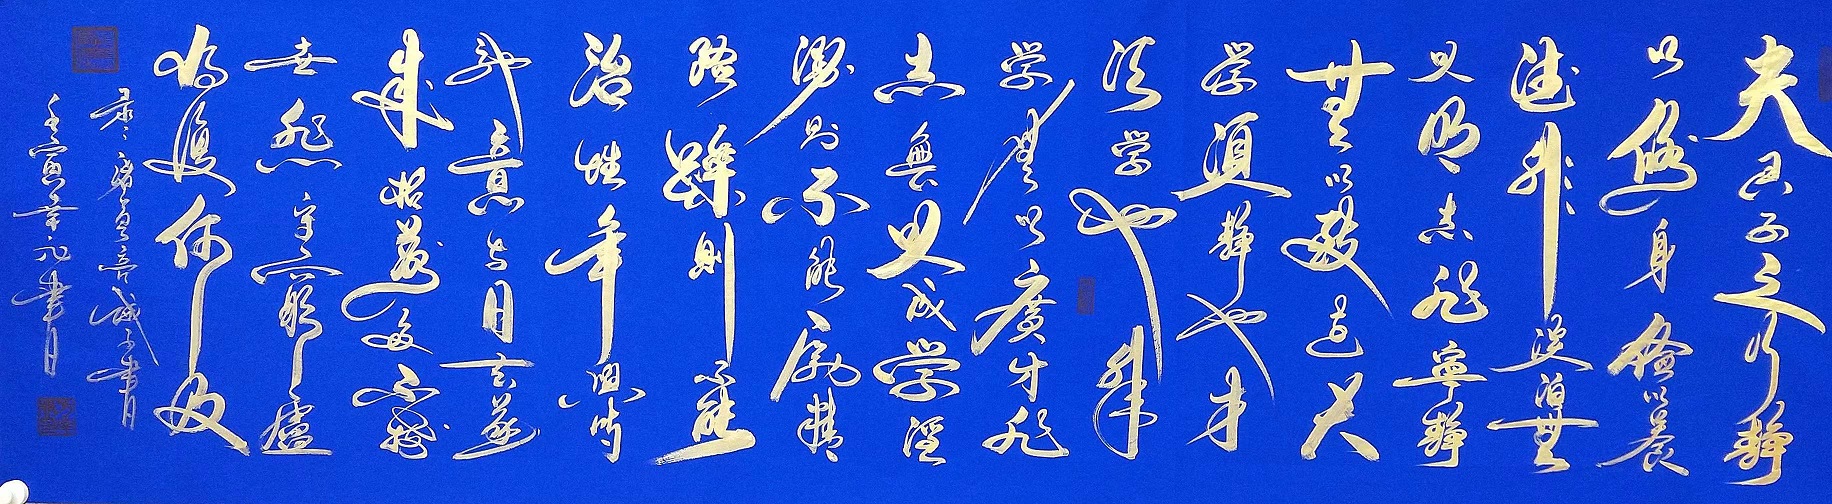 夫君子之行静
以修身俭以养
德非淡泊無
以明志非寧静
無以致远夫
学須静也才
須学也非
学無以廣才非
志無以成学淫
慢则不能励精
险躁则不能
治性年与时
驰意与日去遂
成枯落多不接
世悲守穷廬
将復何及
诸葛亮诫子书
壬寅年